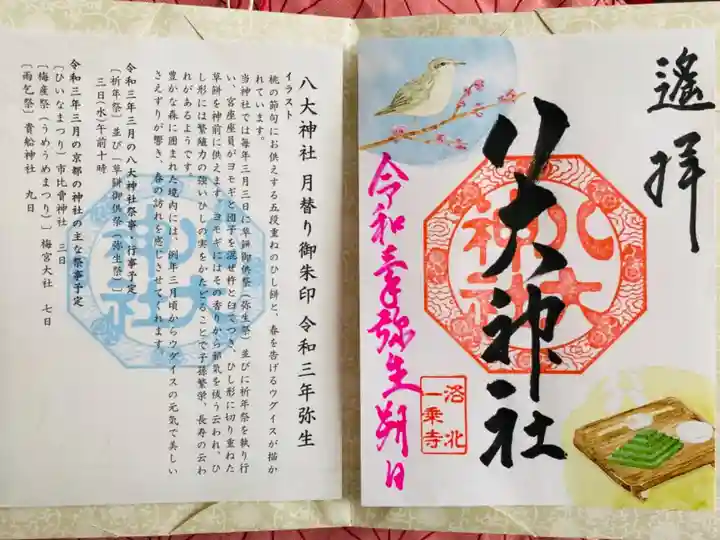 遙拝
八大神社
八大神社
令和三年弥生朔日
洛北
一乗寺
八大神社 月替り御朱印 令和三年弥生
イラスト
桃の節句にお供えする五段重ねのひし餅と、春を告げるウグイスが描か
れています。
当神社では毎年三月三日に草餅御供祭(弥生祭)並びに祈年祭を執り行
い、宮座座員がヨモギと団子を混ぜ杵と臼でつき、ひし形に切り重ねた
草餅を神前に供えます。ヨモギにはその香りから邪気を祓う云われ、ひ
し形には繁殖力の強いひしの実をかたどることで子孫繁栄、長寿の云わ
れがあるようです。
豊かな森に囲まれた境内には、例年三月頃からウグイスの元気で美しい
さえずりが響き、春の訪れを感じさせてくれます。
令和三年三月の八大神社祭事・行事予定
〔祈年祭〕並び〔草餅御供祭(弥生祭)〕
三日(水)午前十時
令和三年三月の京都の神社の主な祭事予定
〔ひいなまつり〕市比賣神社 三日
〔梅産祭(うめうめまつり)〕梅宮大社 七日
〔雨乞祭〕貴船神社 九日
八大神社